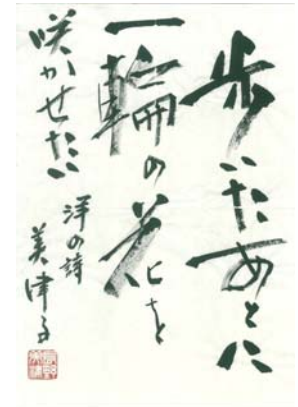 歩いたあとに
一輪の花を
咲かせたい
洋の詩
美津子